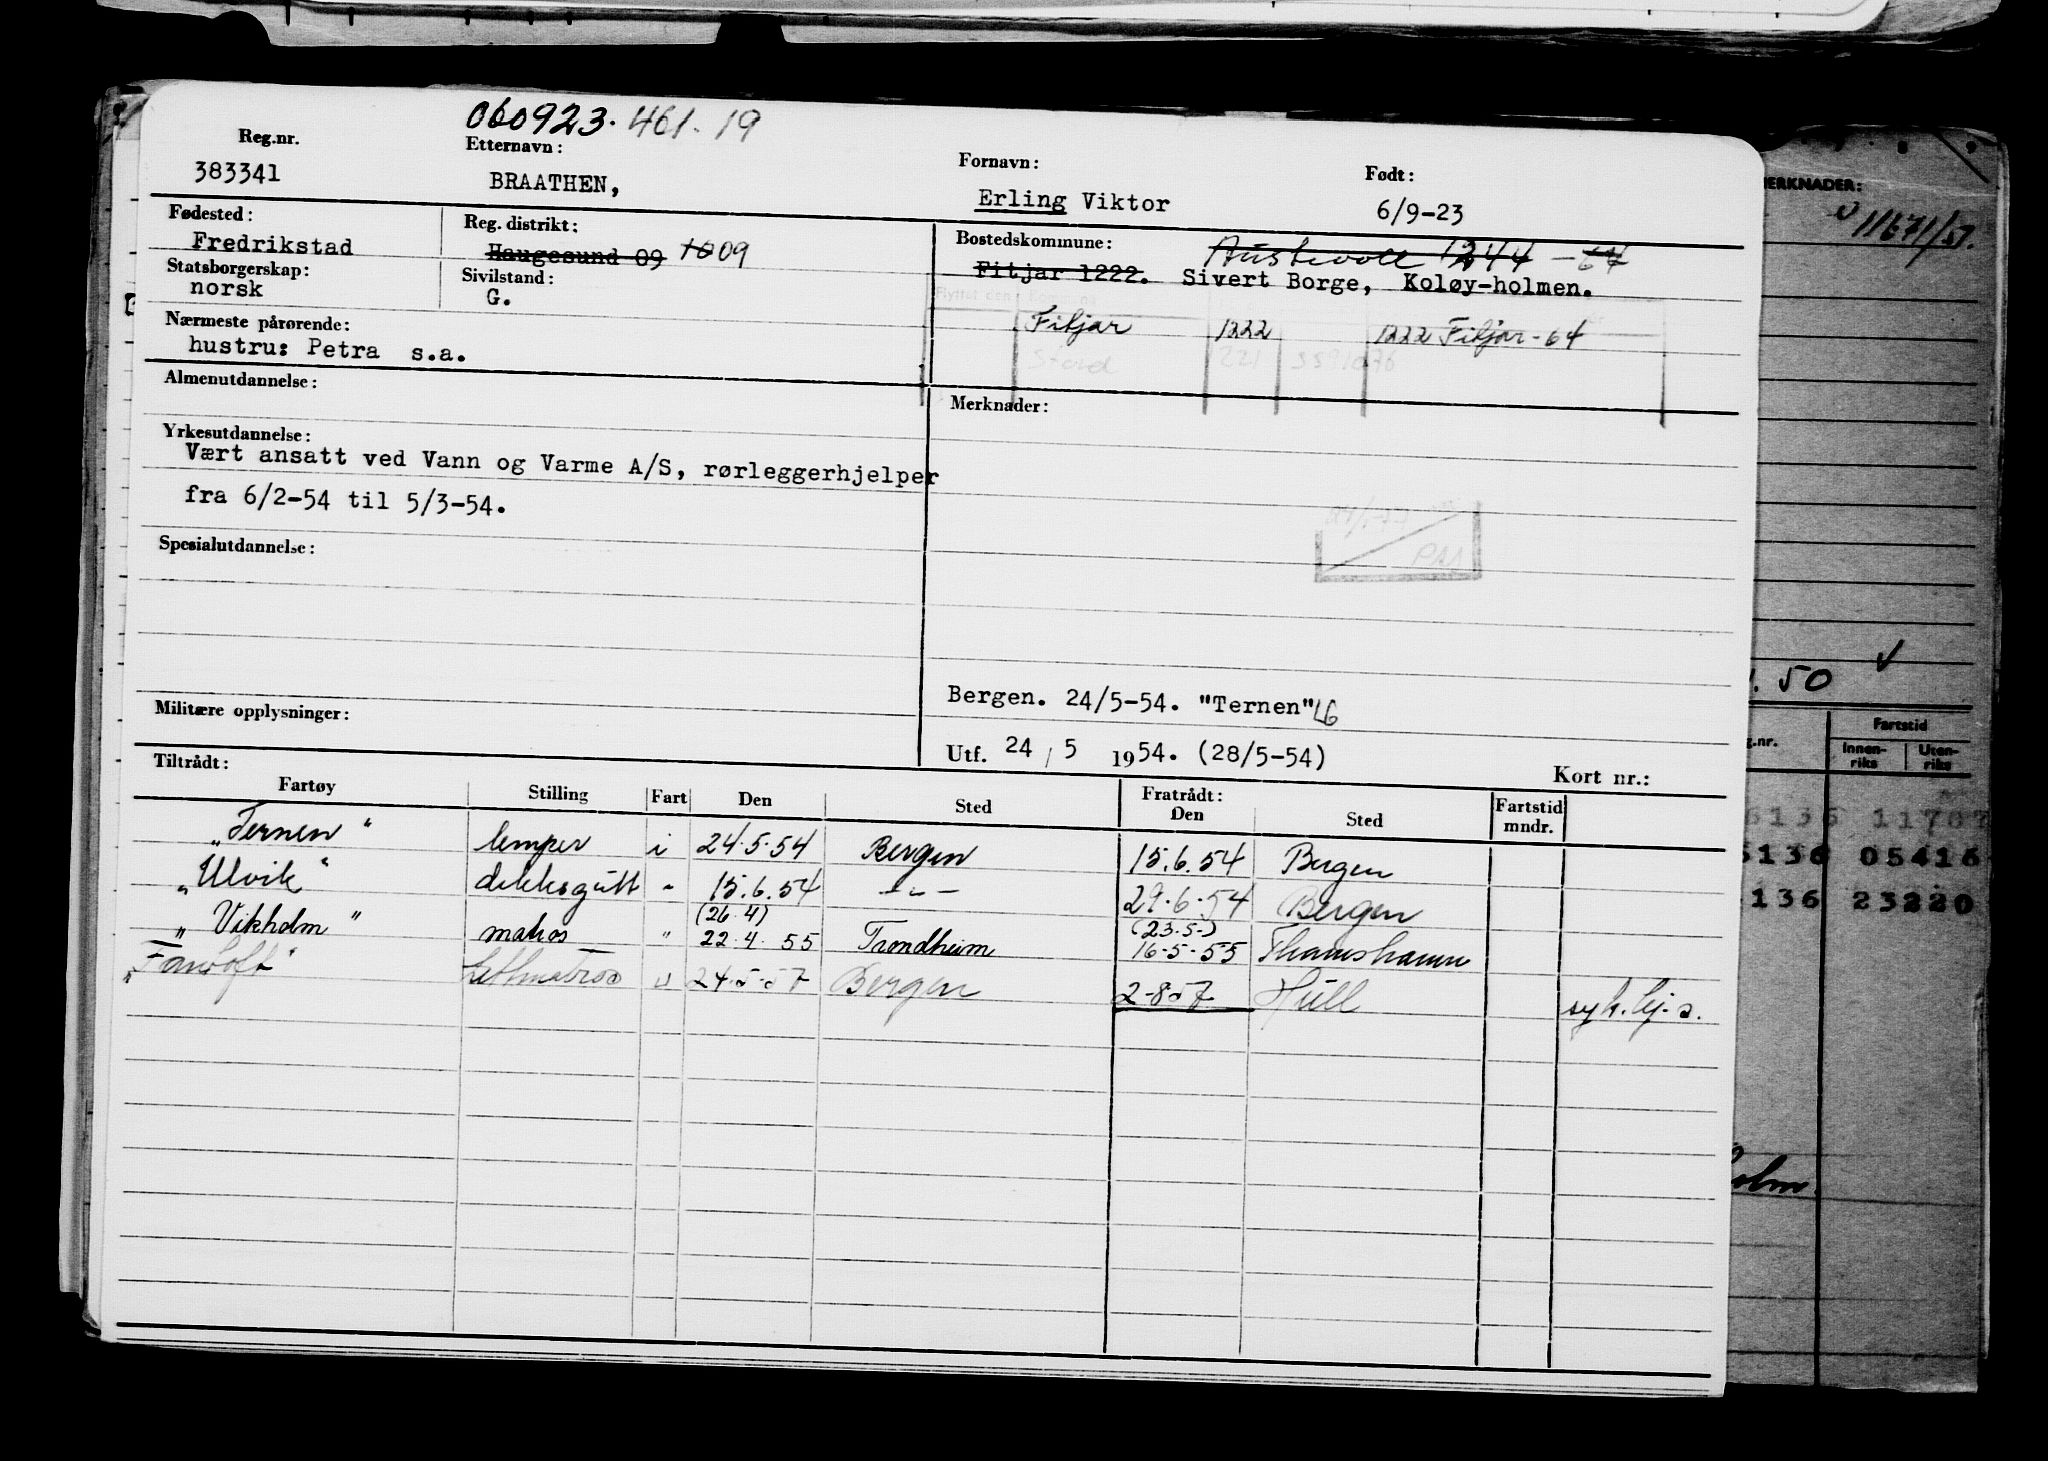 060923.461.19
Reg.nr. Etternavn: Fornavn: Født:
383341 BRAATHEN, Erling Viktor 6/9-23
Fødested: Reg. distrikt: Bostedskommune: Austevoll 1244 -64
Fredrikstad Haugesund 09 10 09 Fitjar 1222. Sivert Borge, Koløy-holmen.
Statsborgerskap: Sivilstand:
norsk G.
Flyttet den Kommune
Nærmeste pårørende: Fitjar 1222 1222 Fitjar-64
hustru: Petra s.a. Stord 221
Almenutdannelse: Merknader:
Yrkesutdannelse:
Vært ansatt ved Vann og Varme A/S, rørleggerhjelper
fra 6/2-54 til 5/3-54.
Spesialutdannelse:
Bergen. 24/5-54. "Ternen"
Militære opplysninger:
Utf. 24 / 5 1954. (28/5-54)
Tiltrådt: Kort nr.:
Fartøy Stilling Fart Den Sted Fratrådt: Den Sted Fartstid mndr.
"Ternen" lemper i 24.5.54 Bergen 15.6.54 Bergen
"Ulvik" dekksgutt " 15.6.54 -"- 29.6.54 Bergen
(26.4) (23.5.)
"Vikholm" matros " 22.4.55 Trondheim 16-5-55 Thamshamn
Lettmatros u 24.5.57 Bergen 2-8-57 Hull syk. lej. s.
MERKNADER:
11671/51.
50
Fartstid
g.nr. Innen-riks Uten-riks
6136 11707
6136 05416
136 23220
olm